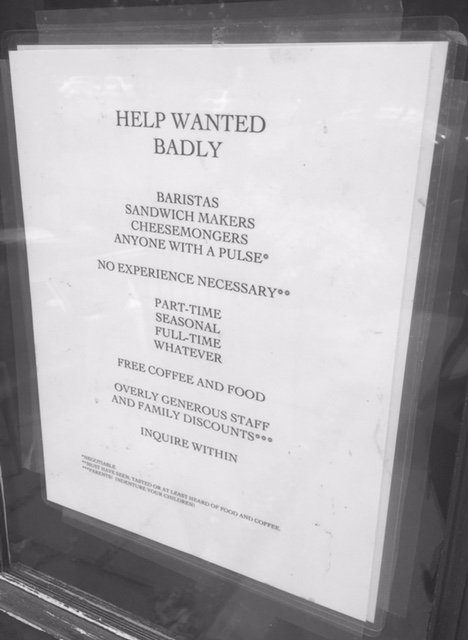 HELP WANTED
BADLY
BARISTAS
SANDWICH MAKERS
CHEESEMONGERS
ANYONE WITH A PULSE*
NO EXPERIENCE NECESSARY**
PART-TIME
SEASONAL
FULL-TIME
WHATEVER
FREE COFFEE AND FOOD
OVERLY GENEROUS STAFF
AND FAMILY DISCOUNTS***
INQUIRE WITHIN
*NEGOTIABLE
**MUST HAVE SEEN, TASTED OR AT LEAST HEARD OF FOOD AND COFFEE.
***PARENTS: INDENTURE YOUR CHILDREN!